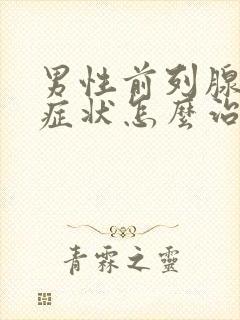 男性前列腺
症状怎麼治
青霖之靈